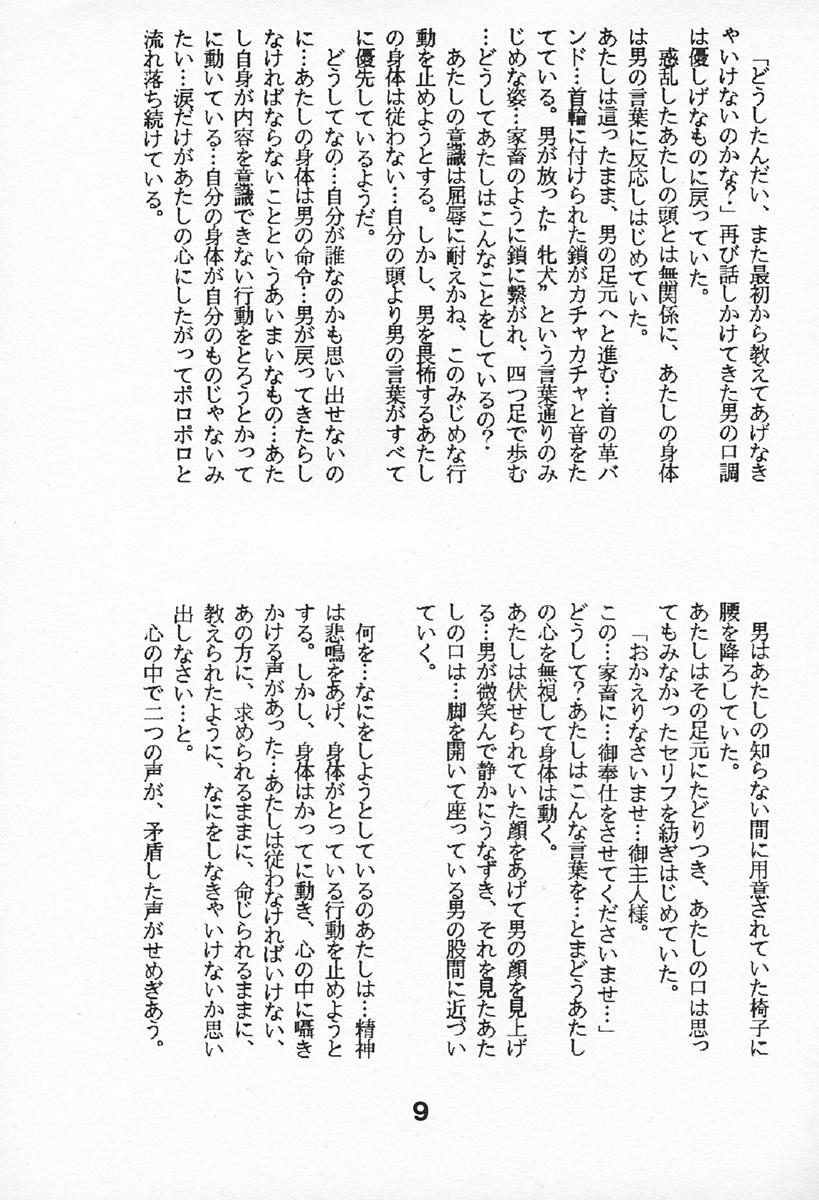 「どうしたんだい、また最初から教えてあげなき
ゃいけないのかな？」再び話しかけてきた男の口調
は優しげなものに戻っていた。
　惑乱したあたしの頭とは無関係に、あたしの身体
は男の言葉に反応しはじめていた。
あたしは這ったまま、男の足元へと進む…首の革バ
ンド…首輪に付けられた鎖がカチャカチャと音をた
てている。男が放った”牝犬”という言葉通りのみ
じめな姿…家畜のように鎖に繋がれ、四つ足で歩む
…どうしてあたしはこんなことをしているの？
　あたしの意識は屈辱に耐えかね、このみじめな行
動を止めようとする。しかし、男を畏怖するあたし
の身体は従わない…自分の頭より男の言葉がすべて
に優先しているようだ。
　どうしてなの…自分が誰なのかも思い出せないの
に…あたしの身体は男の命令…男が戻ってきたらし
なければならないことというあいまいなもの…あた
し自身が内容を意識できない行動をとろうとかって
に動いている…自分の身体が自分のものじゃないみ
たい…涙だけがあたしの心にしたがってポロポロと
流れ落ち続けている。
　男はあたしの知らない間に用意されていた椅子に
腰を降ろしていた。
あたしはその足元にたどりつき、あたしの口は思っ
てもみなかったセリフを紡ぎはじめていた。
「おかえりなさいませ…御主人様。
この…家畜に…御奉仕をさせてくださいませ…」
どうして？あたしはこんな言葉を…とまどうあたし
の心を無視して身体は動く。
あたしは伏せられていた顔をあげて男の顔を見上げ
る…男が微笑んで静かにうなずき、それを見たあた
しの口は…脚を開いて座っている男の股間に近づい
ていく。
　何を…なにをしようとしているのあたしは…精神
は悲鳴をあげ、身体がとっている行動を止めようと
する。しかし、身体はかってに動き、心の中に囁き
かける声があった…あたしは従わなければいけない、
あの方に、求められるままに、命じられるままに、
教えられたように、なにをしなきゃいけないか思い
出しなさい…と。
　心の中で二つの声が、矛盾した声がせめぎあう。
9